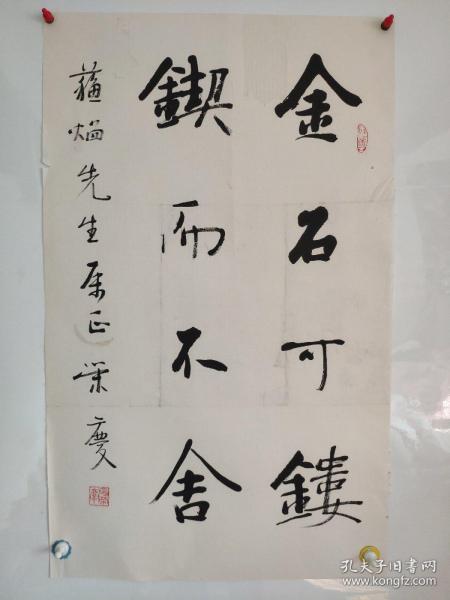 金石可鏤
鍥而不舍
蘊焰先生属正荣慶
孔夫子旧书网
www.kongfz.com